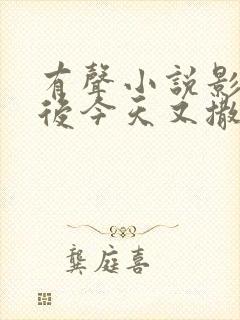 有聲小說影
後今天又撒
龔庭喜